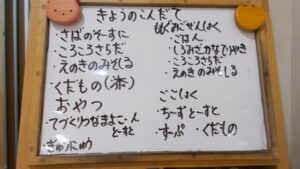 きょうのこんだて
・さばのそーすに
・ころころさらだ
・えのきのみそしる
くだもの(添)
おやつ
てづくりつなまよこーん
とーすと
・ぎゅうにゅう
もぐみごぜんしょく
・ごはん
・しろみざかなてりやき
・ころころさらだ
・えのきのみそしる
ごごしょく
・ちーずとーすと
・すーぷ ・くだもの